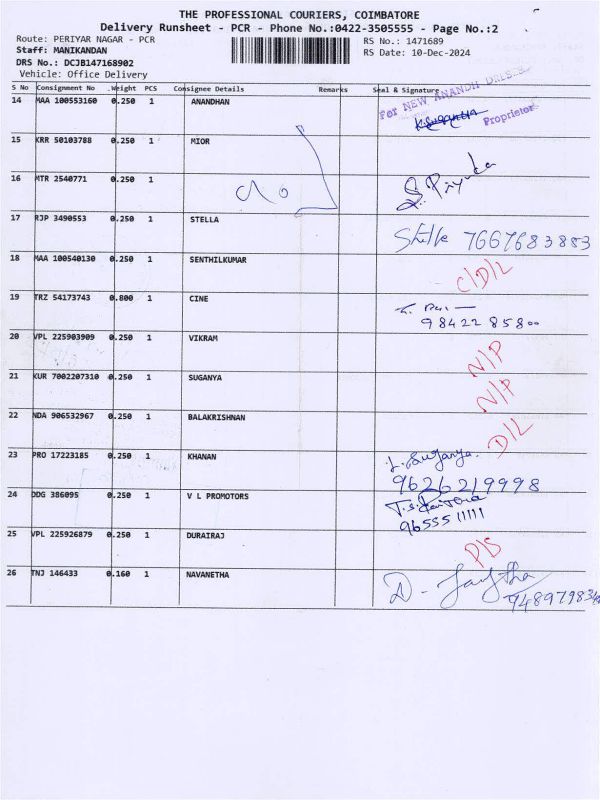 THE PROFESSIONAL COURIERS, COIMBATORE
Delivery Runsheet - PCR - Phone No.:0422-3505555 - Page No.:2
Route: PERIYAR NAGAR - PCR
RS No.: 1471689
Staff: MANIKANDAN
RS Date: 10-Dec-2024
DRS No.: DCJB147168902
Vehicle: Office Delivery
S No Consignment No .Weight PCS Consignee Details Remarks Seal & Signature
14 MAA 100553160 0.250 1 ANANDHAN
For NEW ANANDH DRESSES
Proprietor
15 KRR 50103788 0.250 1 MIOR
16 MTR 2540771 0.250 1
S. Priyanka
17 RJP 3490553 0.250 1 STELLA
Stella 7667683883
18 MAA 100540130 0.250 1 SENTHILKUMAR
C/D/L
19 TRZ 54173743 0.800 1 CINE
98422 85800
20 VPL 225903909 0.250 1 VIKRAM
N/P
21 KUR 7002207310 0.250 1 SUGANYA
N/P
22 NDA 906532967 0.250 1 BALAKRISHNAN
D/L
23 PRO 17223185 0.250 1 KHANAN
9626219998
24 DDG 386095 0.250 1 V L PROMOTORS
9655511111
25 VPL 225926879 0.250 1 DURAIRAJ
P/S
26 TNJ 146433 0.160 1 NAVANETHA